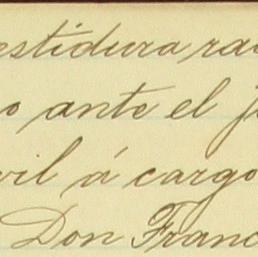 estidura ra
o ante el j
vil á cargo
Don Franc